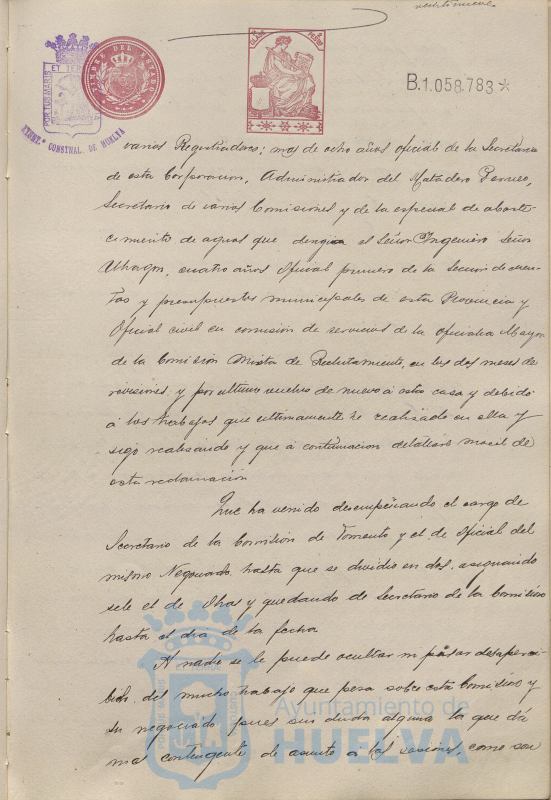 veintinueve
TIMBRE DEL ESTADO
PORTUS MARIS ET TERRÆ
EXCMT.º CONSTNAL. DE HUELVA
B.1.058.783*
varios Registradores; mas de ocho años oficial de la Secretaria
de esta Corporacion, Administrador del Matadero Perneo,
Secretario de varias Comisiones y de la especial de abaste-
cimiento de aguas que el Señor Ingeniero Señor
cuatro años Oficial primero de la Seccion de cuen-
tas y presupuestos municipales de esta Provincia y
Oficial civil en comision de servicios de la Oficialia Mayor
de la Comisión Mixta de Reclutamiento, en los dos meses de
revisiones, y por ultimo vuelvo de nuevo á esta casa y debido
á los trabajos que ultimamente he realizado en ella y
sigo realizando y que á continuacion movil de
esta reclamación
Que ha venido desempeñando el cargo de
Secretario de la Comision de Fomento y el de Oficial del
mismo Negociado, hasta que se dividio en dos, asignando
sele el de Obras y quedando de Secretario de la Comision
hasta el dia de la fecha
A nadie se le puede ocultar ni pasar desaperci-
bido del mucho trabajo que pesa sobre esta Comision y
su negociado pues sin duda alguna la que dá
mas contingente de asunto á las sesiones, como son
Ayuntamiento de
HUELVA